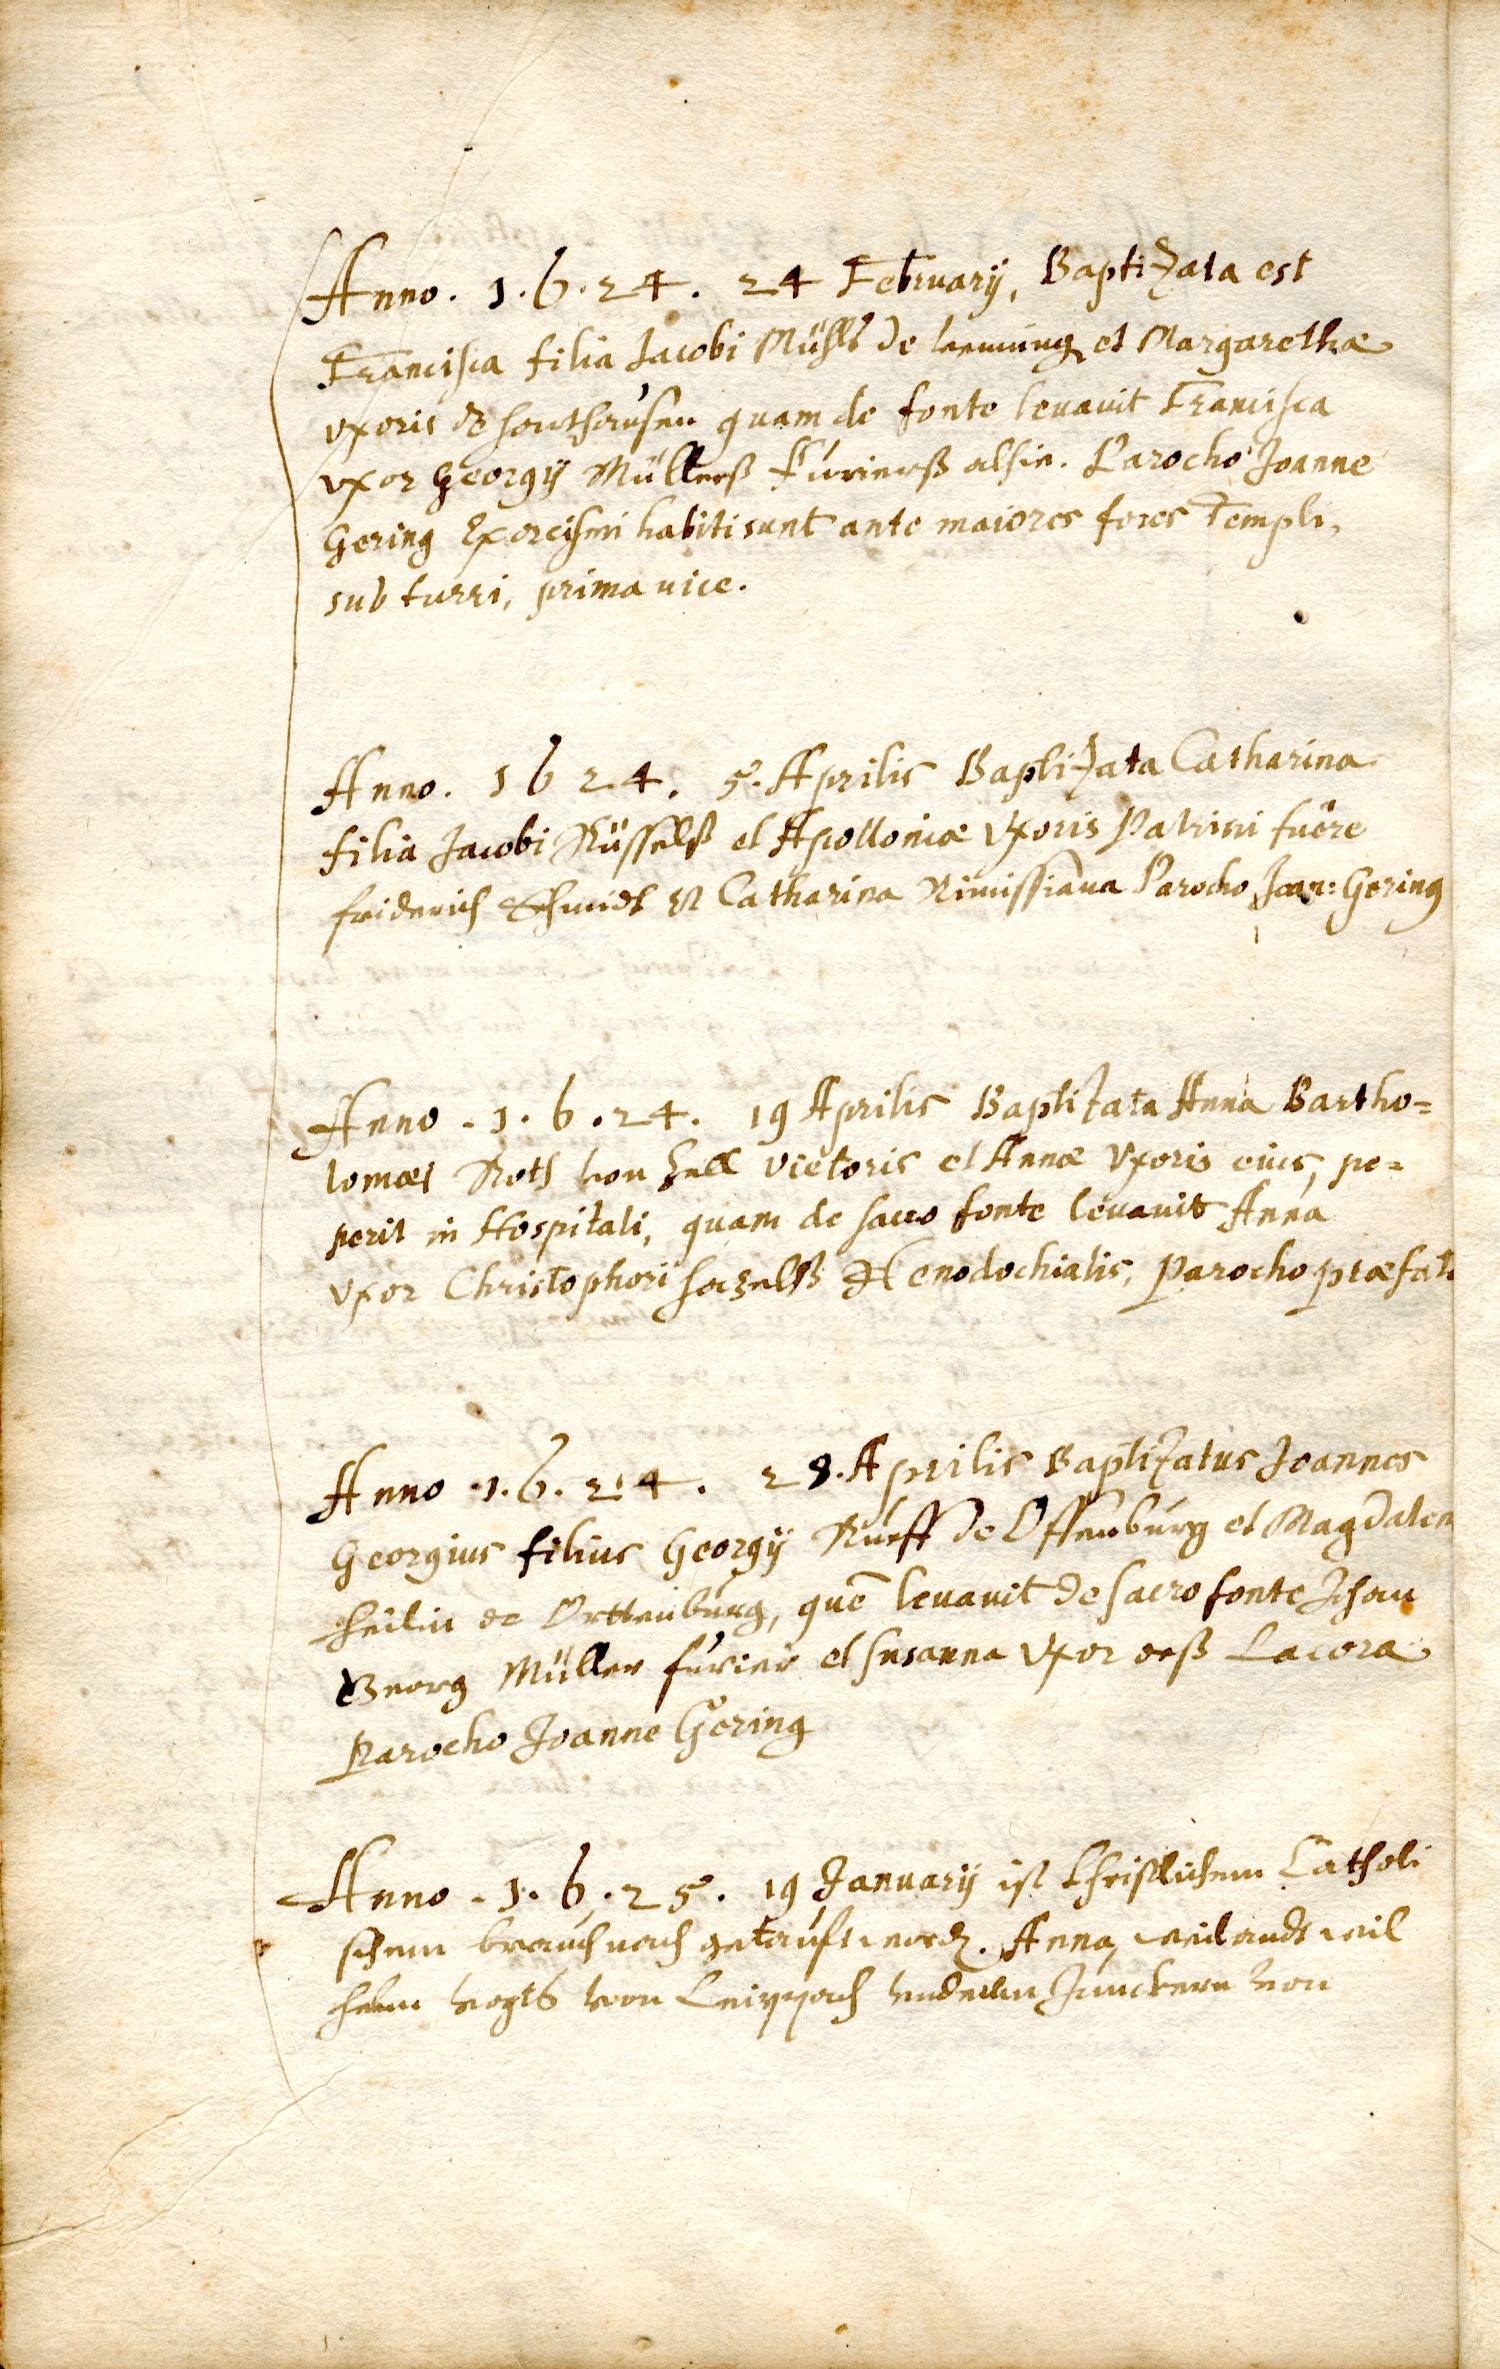 Anno. 1.6.24. 24 February, Baptizata est
Francisca filia Jacobi Mühls de et Margarethæ
vxoris de quam de fonte leuauit Francisca
vxor Georgÿ Müllerß Furierß alhie. Parocho Joanne
Gering Exorcismi habiti sunt ante maiores fores Templi,
sub turri, prima uice.
Anno. 1624. 5. Aprilis Baptizata Catharina
filia Jacobi Rüsselß et Apolloniæ Vxoris Patrini fuere
friderich Schmidt et Catharina Parocho Joan: Gering
Anno. 1.6.24. 19 Aprilis Baptizata Anna Bartho=
lomæi Roth von Zell victoris et Annæ Vxoris eius, pe=
perit in Hospitali, quam de sacro fonte leuauit Anna
vxor Christophori Xenodochialis, Parocho præfato
Anno 1.6.24. 28. Aprilis Baptizatus Joannes
Georgius filius Georgÿ Rueff de Offenburg et Magdalen
de Orttenburg, quē leuauit de sacro fonte Johan
Georg Müller furier et Susanna Vxor deß Lacora
Parocho Joanne Gering
Anno. 1.6.25. 19 Januarÿ ist Christlichem Catholi
schem brauch nach getauft word. Anna, weilandt wil
helm vogts von Junckern von